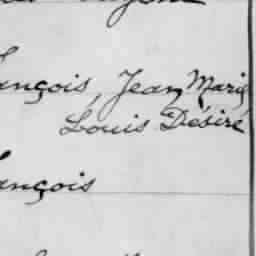 ançois, Jean Marie
Louis Désiré
ançois